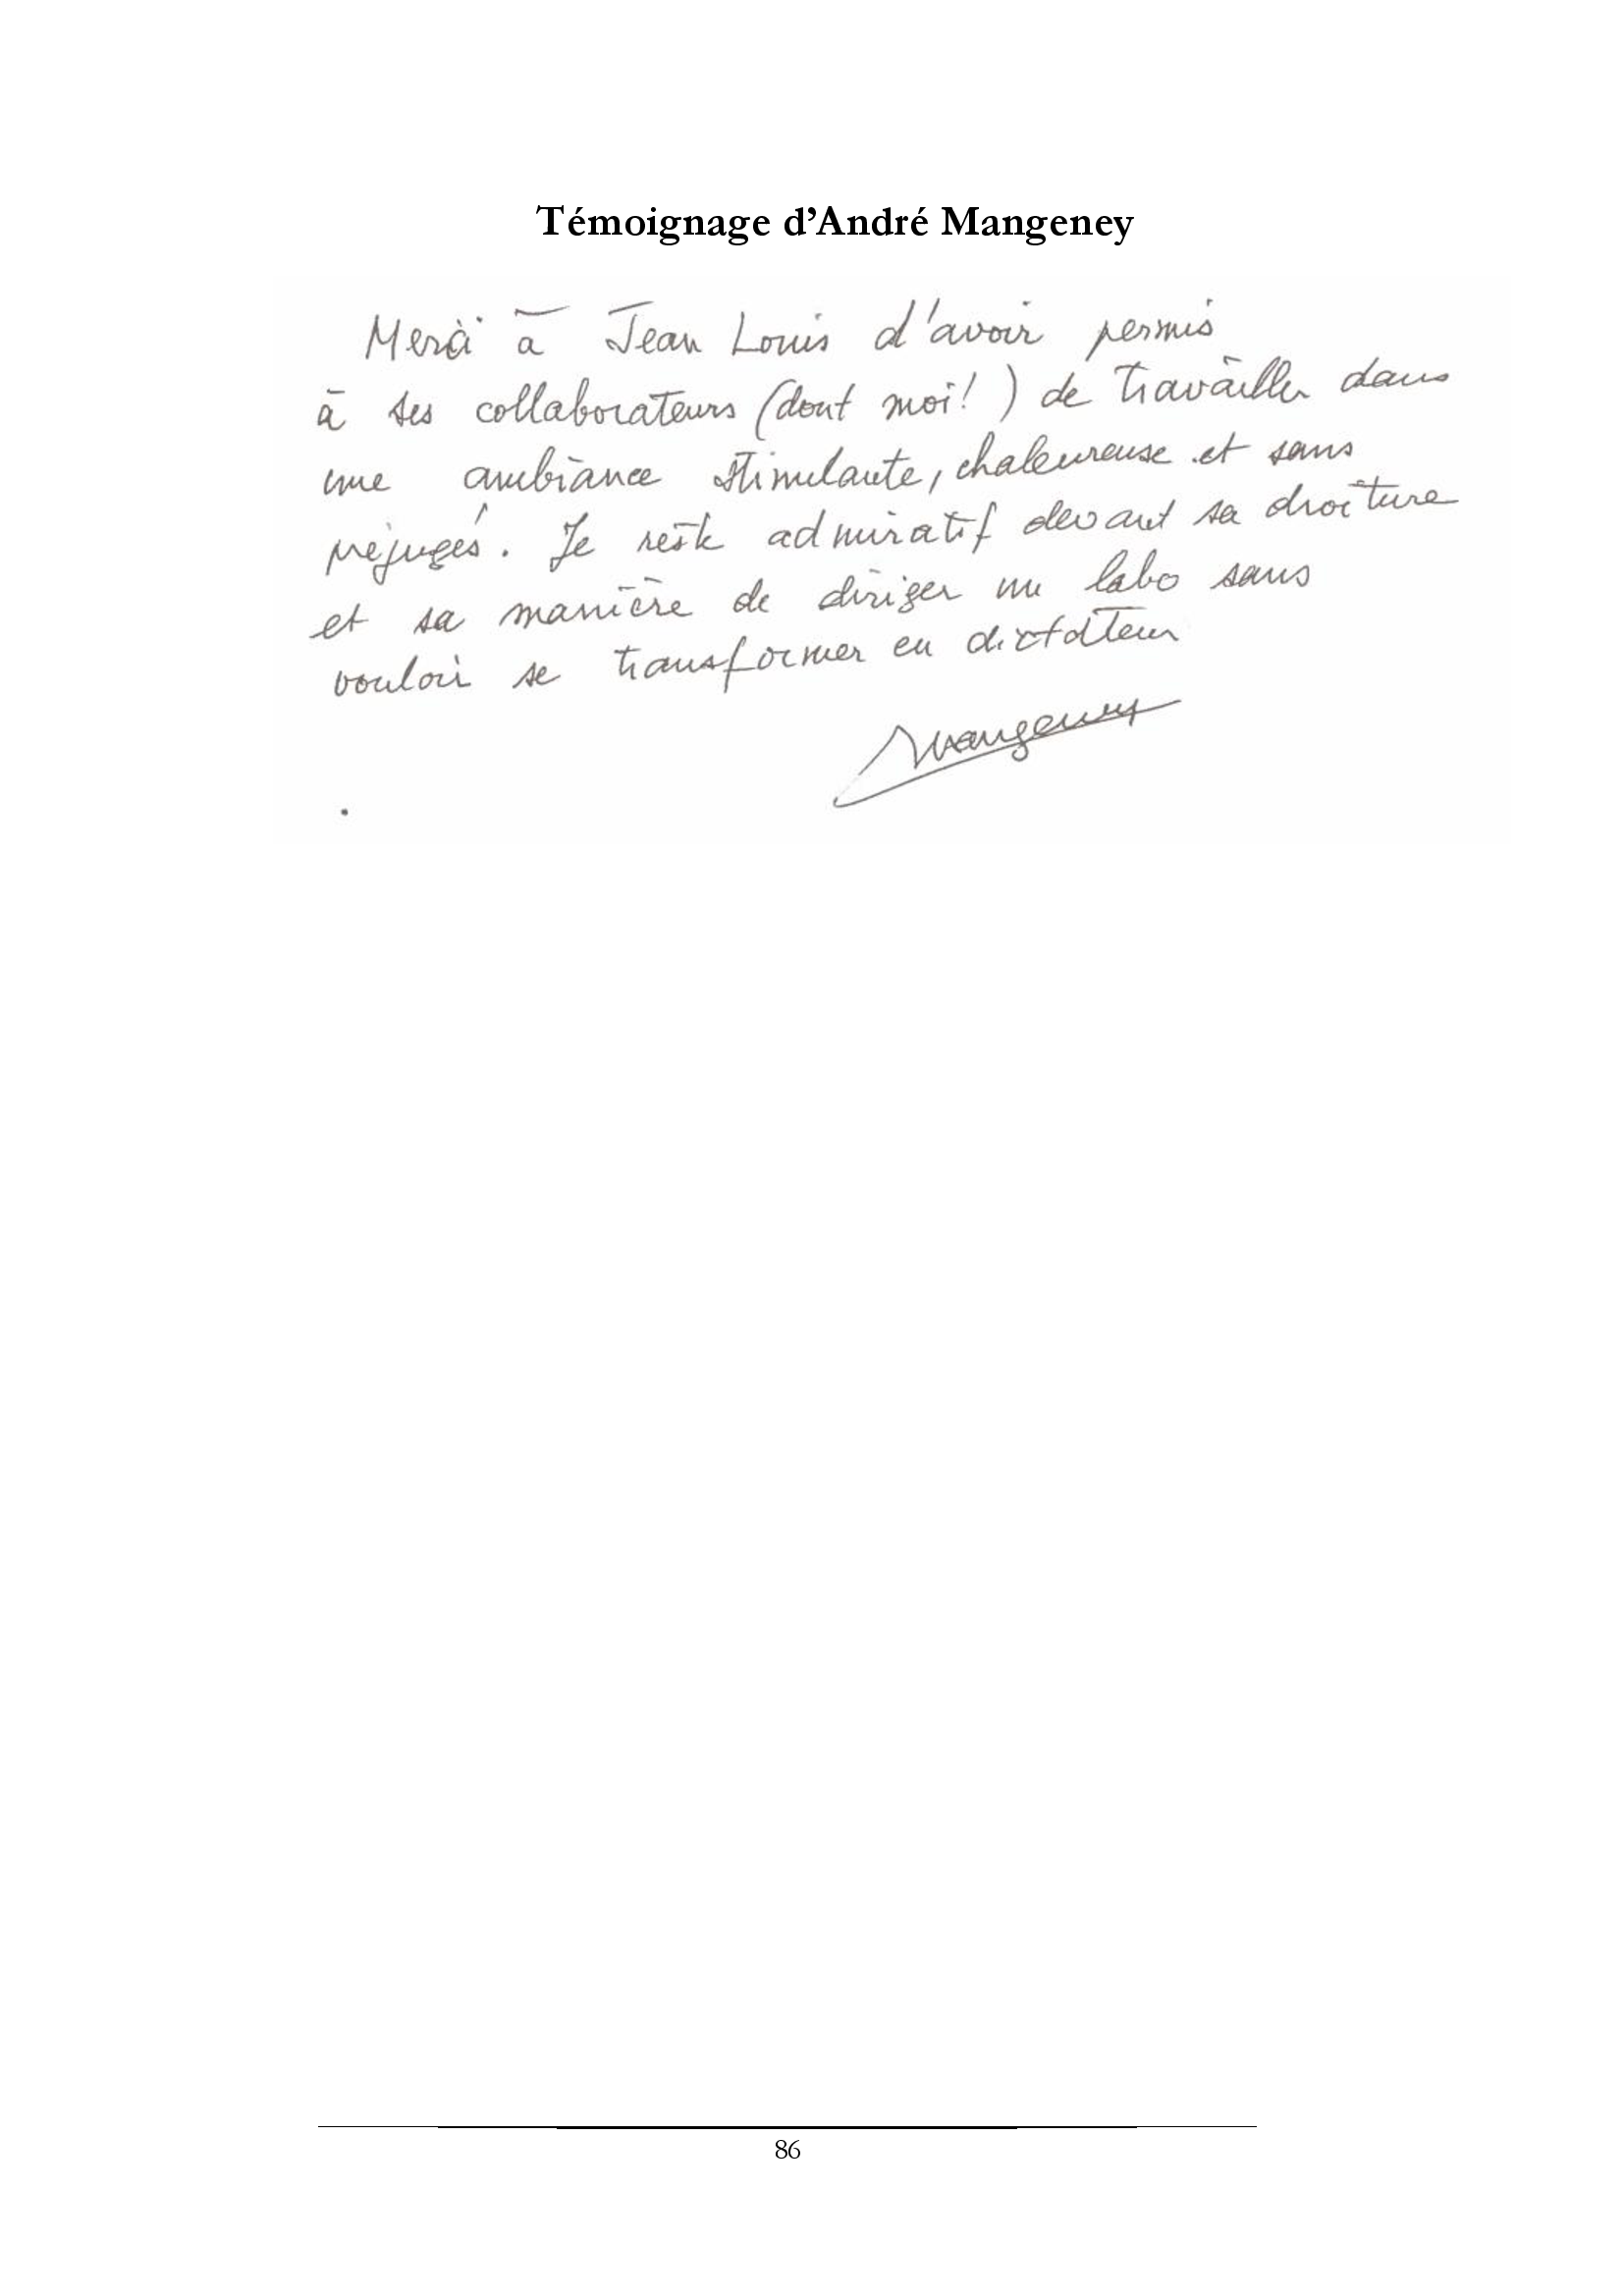 Témoignage d’André Mangeney
Merci à Jean Louis d'avoir permis
à ses collaborateurs (dont moi! ) de travailler dans
une ambiance stimulante, chaleureuse et sans
préjugés. Je reste admiratif devant sa droiture
et sa manière de diriger un labo sans
vouloir se transformer en dictateur
Mangeney
86